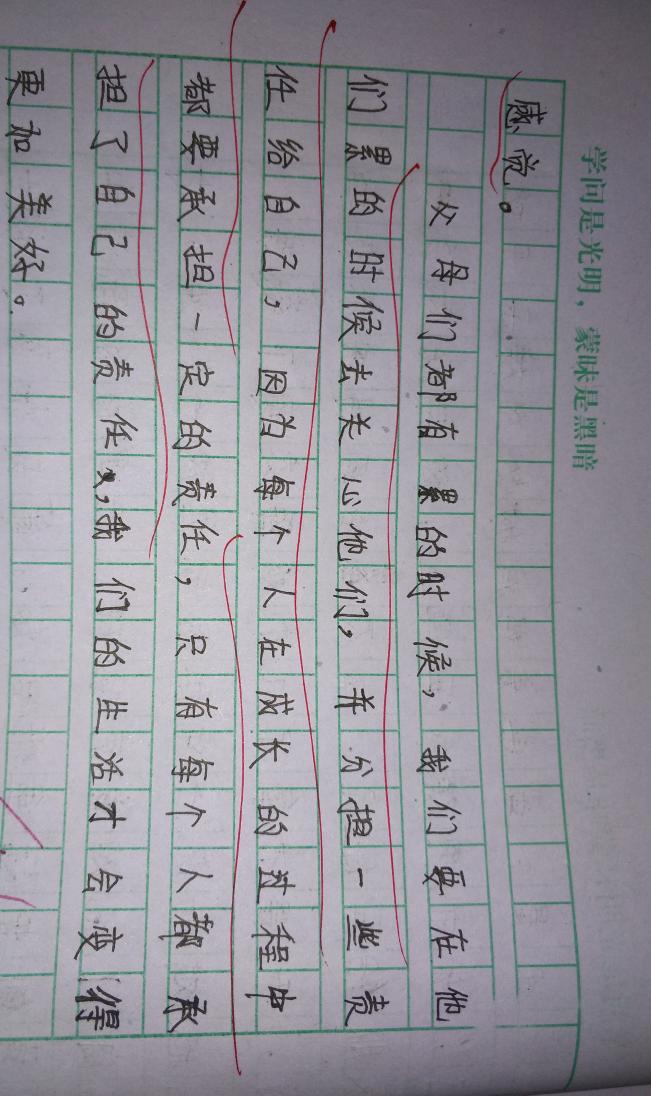 学问是光明，蒙昧是黑暗
感觉。
父母们都有累的时候，我们要在他
们累的时候去关心他们，并分担一些责
任给自己，因为每个人在成长的过程中
都要承担一定的责任，只有每个人都承
担了自己的责任，我们的生活才会变得
更加美好。